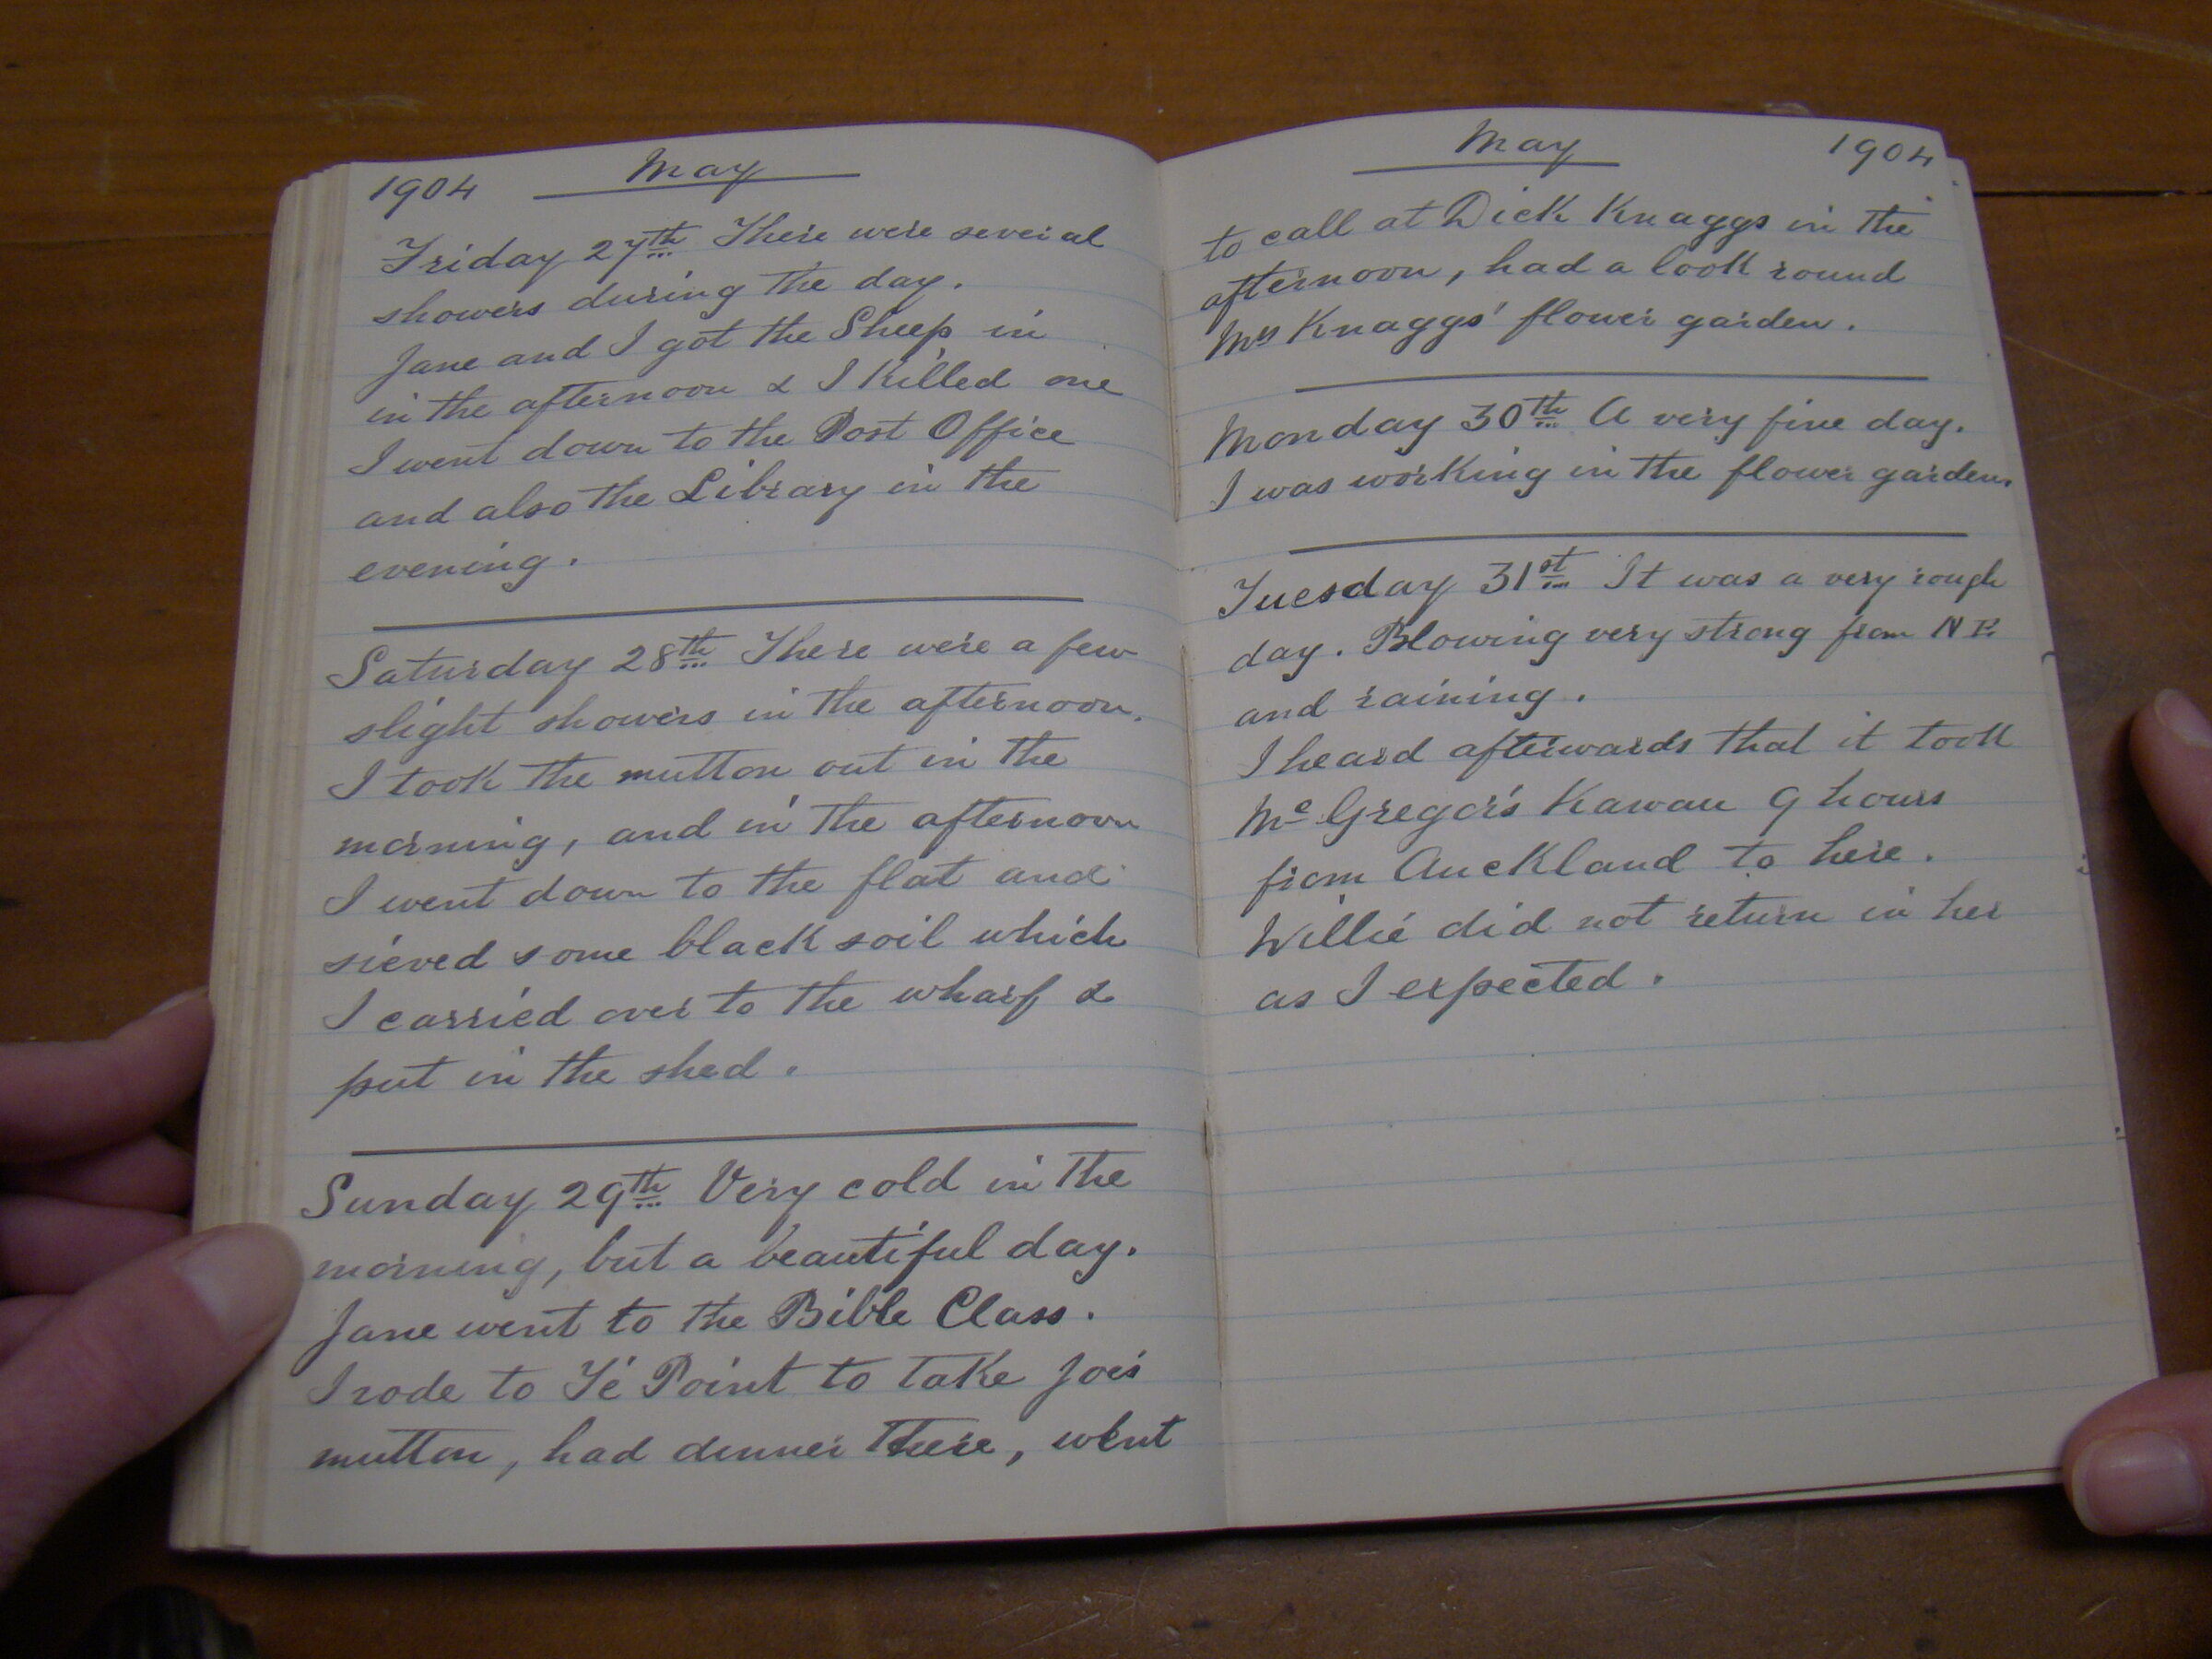 1904 May
Friday 27th There were several
showers during the day.
Jane and I got the Sheep in
in the afternoon & I killed one
I went down to the Post Office
and also the Library in the
evening.
Saturday 28th There were a few
slight showers in the afternoon.
I took the mutton out in the
morning, and in the afternoon
I went down to the flat and
sieved some black soil which
I carried over to the wharf &
put in the shed.
Sunday 29th Very cold in the
morning, but a beautiful day.
Jane went to the Bible Class.
I rode to Ti Point to take Joe's
mutton, had dinner there, went
May 1904
to call at Dick Knaggs in the
afternoon, had a look round
Mrs Knaggs' flower garden.
Monday 30th A very fine day.
I was working in the flower garden.
Tuesday 31st It was a very rough
day. Blowing very strong from N E
and raining.
I heard afterwards that it took
McGregor's Kawau 9 hours
from Auckland to here.
Willie did not return in her
as I expected.